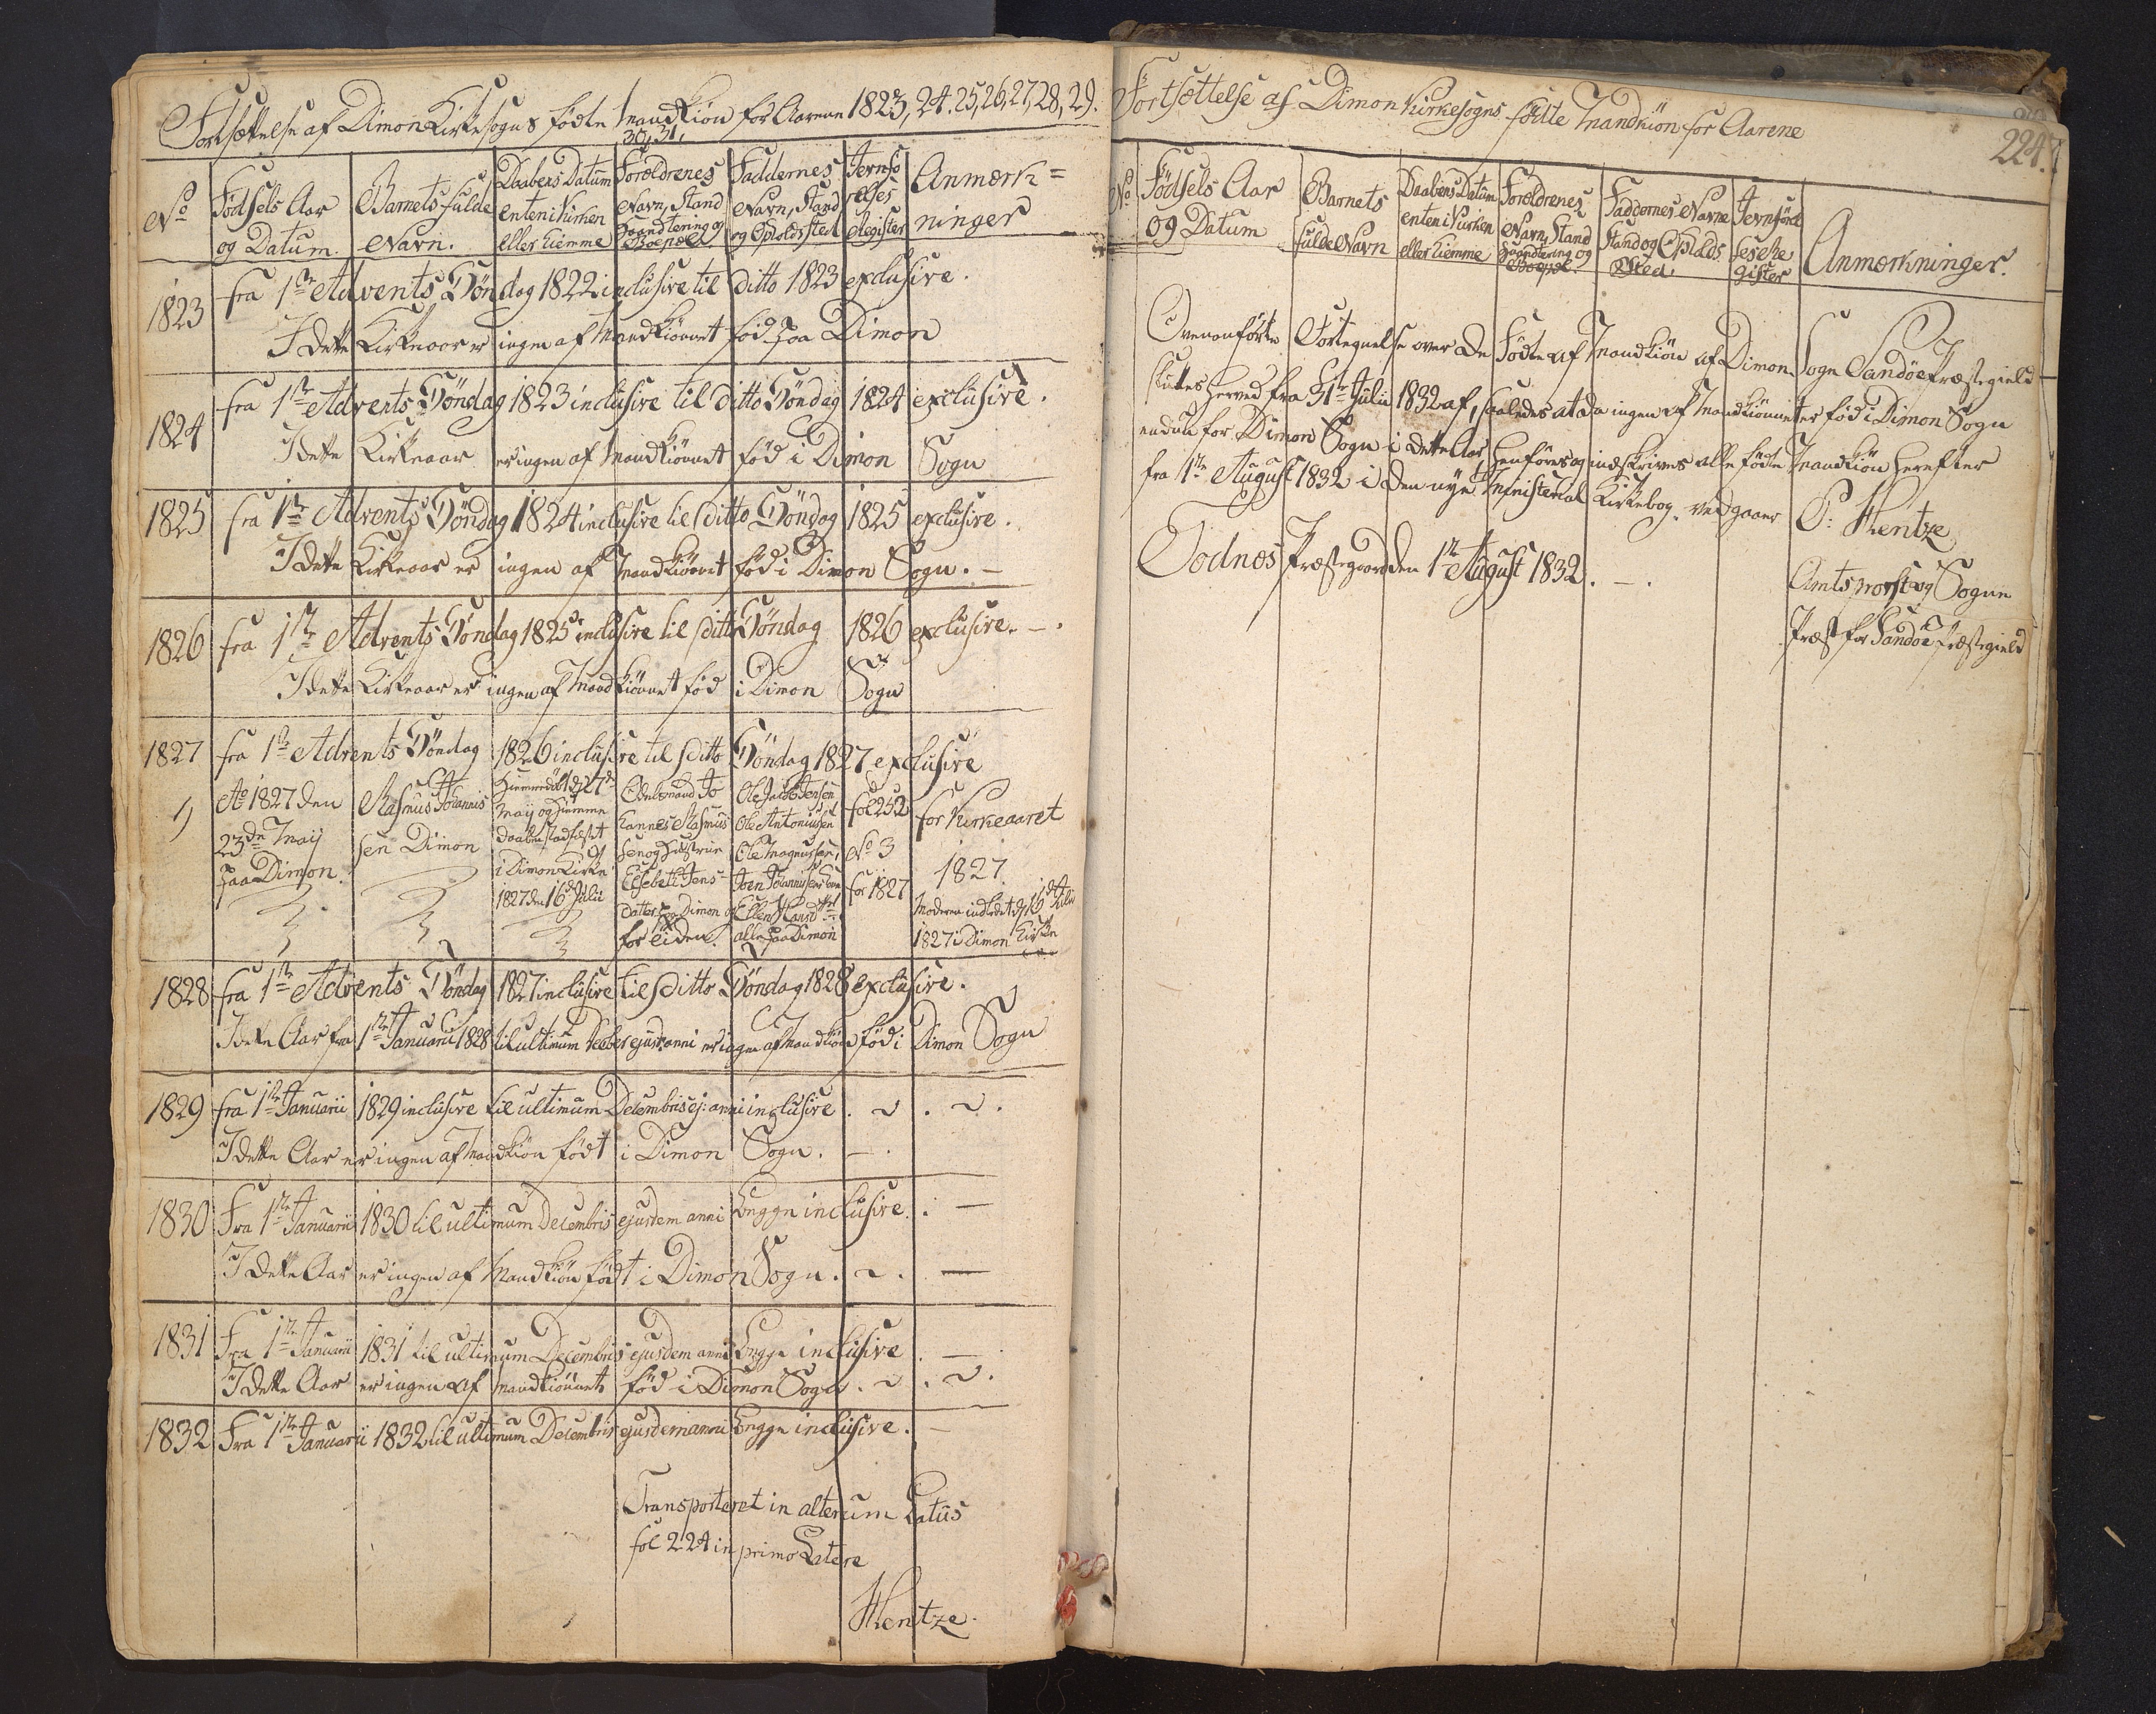 Fortsættelse af Dimon Kirkesogns fødte Mandkiøn for Aarene 1823, 24. 25, 26, 27, 28, 29.
30, 31,
No
Fødsels Aar
og Datum.
Barnets fulde
Navn.
Daabens Datum
enten i Kirken
eller hiemme
Forældrenes
Navn, Stand
Haandtering og
Boepæl
Faddernes
Navn, Stand
og Opholdssted
Jevnfø
relses
Register
Anmærk=
ninger
1823 fra 1ste Advents Søndag 1822 inclusive til ditto 1823 exclusive.
I dette Kirkeaar er ingen af Mandkiønnet fød paa Dimon
1824 fra 1ste Advents Søndag 1823 inclusive til ditto Søndag 1824 exclusive.
I dette Kirkeaar er ingen af Mandkiønnet fød i Dimon Sogn
1825 fra 1ste Advents Søndag 1824 inclusive til ditto Søndag 1825 exclusive.
I dette Kirkeaar er ingen af Mandkiønnet fød i Dimon Sogn. –
1826 fra 1ste Advents Søndag 1825 inclusive til ditto Søndag 1826 exclusive. – .
I dette Kirkeaar er ingen af Mandkiønnet fød i Dimon Sogn
1827 fra 1ste Advents Søndag 1826 inclusive til ditto Søndag 1827 exclusive
1
Ao 1827 den
23de Maij
paa Dimon.
Rasmus Johannis
sen Dimon
Hiemmedøbt d. 27de
Maij og hiemme
daaben stadfæstet
i Dimon Kirke
1827 den 16de Julii
Odelsmand Jo
hannes Rasmus
sen og Hustrue
Elsebeth Jens=
datter paa Dimon
for tiden.
Ole Jacob Jensen
Ole Antoniussen
Ole Magnussen,
Joen Johannissens
Ellen Hansd
alle paa Dimon
fol 252
No 3
for 1827
for Kirkeaaret
1827.
Moderen indledet d. 16de Julii
1827 i Dimon Kirke
1828 fra 1ste Advents Søndag 1827 inclusive til ditto Søndag 1828 exclusive.
I dette Aar fra 1ste Januarii 1828 til ultimum Decbr ejusd. anni er ingen af Mandkiøn fød i Dimon Sogn
1829 fra 1ste Januarii 1829 inclusive til ultimum Decembris ej: anni inclusive.
I dette Aar er ingen af Mandkiøn født i Dimon Sogn. – .
1830 Fra 1ste Januarii 1830 til ultimum Decembris ejusdem anni begge inclusive. . –
I dette Aar er ingen af Mandkiøn født i Dimon Sogn. –
1831 Fra 1ste Januarii 1831 til ultimum Decembris ejusdem anni begge inclusive . –
I dette Aar er ingen af Mandkiønnet fød i Dimon Sogn.
1832 Fra 1ste Januarii 1832 til ultimum Decembris ejusdem anni begge inclusive. –
Transporteret in alterum Latus
fol 224 in primo Latere
Hentze.
Fortsættelse af Dimon Kirkesogns fødte Mandkiøn for Aarene
224.
No
Fødsels Aar
og Datum
Barnets
fulde Navn
Daabens Datum
enten i Kirken
eller hiemme
Forældrenes
Navn, Stand
Haandtering og
Boepæl.
Faddernes Navne
Stand og Opholds
Sted.
Jevnførel
ses Re
gister
Anmærkninger.
Ovenanførte Fortegnelse over de Fødte af Mandkiøn af Dimon Sogn Sandøe Præstegield
sluttes herved fra 31te Julii 1832 af, saaledes at da ingen af Mandkiønnet er fød i Dimon Sogn
endnu for Dimon Sogn i dette Aar, henføres og indskrives alle fødte Mandkiøn herefter
fra 1ste August 1832 i den nye Ministerial Kirkebog. vedgaaer
Todnes Præstegaard den 1ste August 1832. – .
P: Hentze
Amtsprovst og Sogne
Præst for Sandøe Præstegield